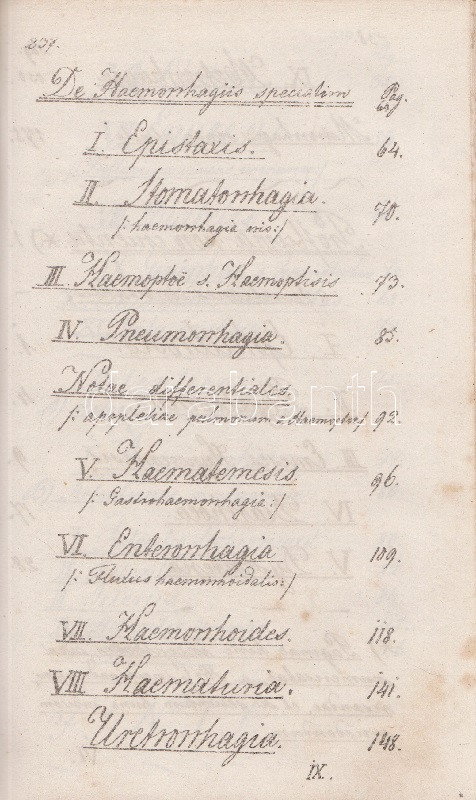 237.
De Haemorrhagiis speciatim Pag.
I. Epistaxis. 64.
II. Stomatorrhagia. 70.
/: haemorrhagia oris :/
III Haemoptoë s. Haemoptisis 73.
IV. Pneumorrhagia. 85.
Notae differentiales.
/: apoplexiae pulmonum & Haemoptoes 92.
V. Haematemesis 96.
/: Gastrohaemorrhagia :/
VI. Enterorrhagia 109.
/: Fluxus haemorrhoidalis :/
VII. Haemorrhoides. 118.
VIII Haematuria. 141.
Uretrorrhagia. 148.
IX.
darabanth